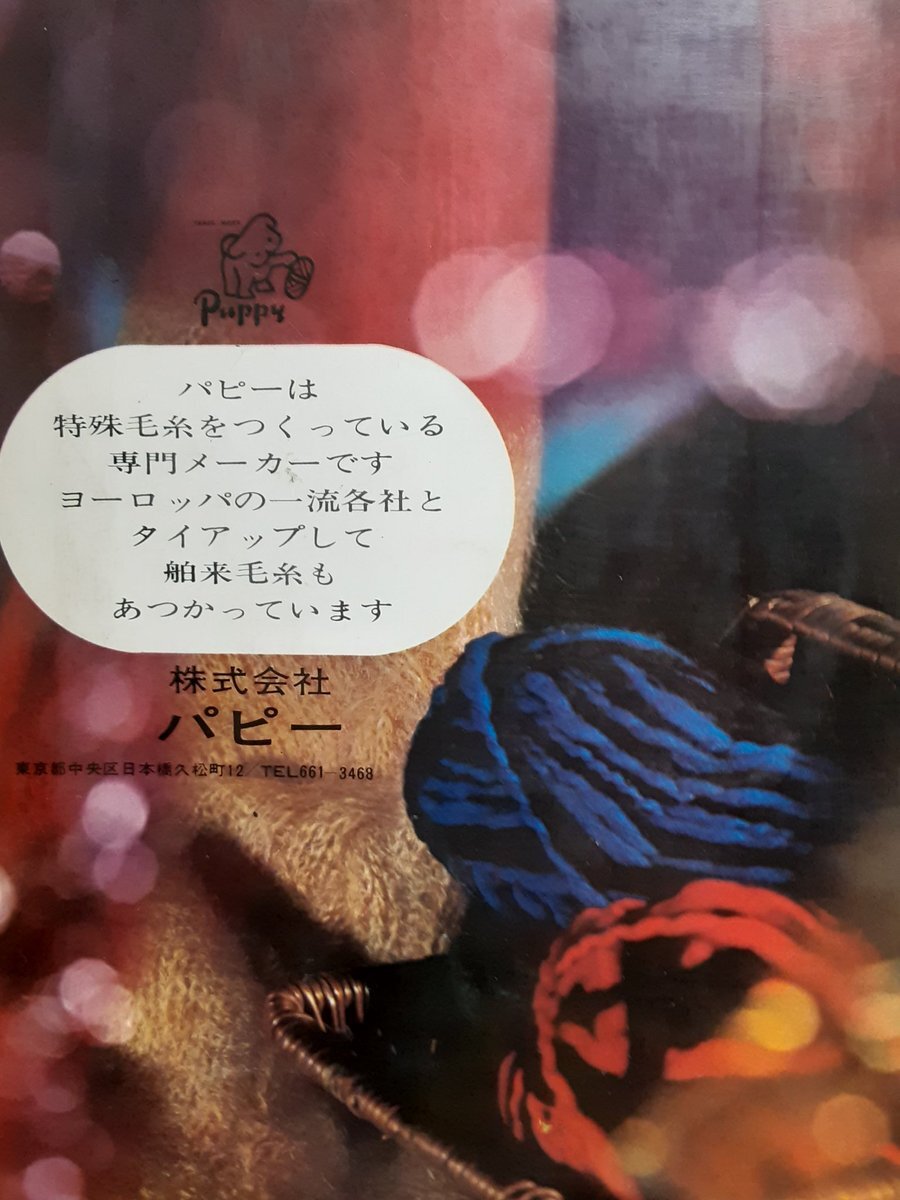 TRADE-MARK
Puppy
パピーは
特殊毛糸をつくっている
専門メーカーです
ヨーロッパの一流各社と
タイアップして
舶来毛糸も
あつかっています
株式会社
パピー
東京都中央区日本橋久松町12/TEL661-3468